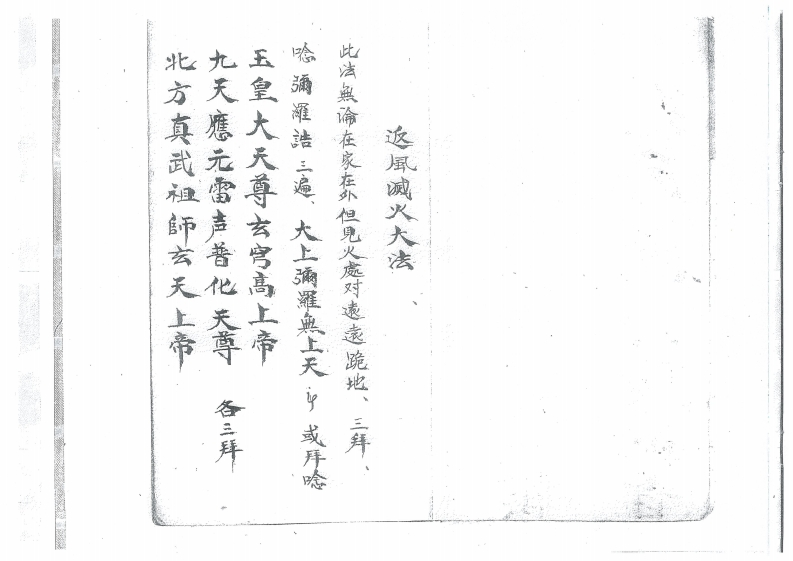 返風滅火大法、
此法無論在家在外但見火處对遠遠跪地、三拜、
唸彌羅誥三遍、大上彌羅無上天 或拜唸
玉皇大天尊玄穹高上帝
九天應元雷声普化天尊 各三拜
北方真武祖師玄天上帝